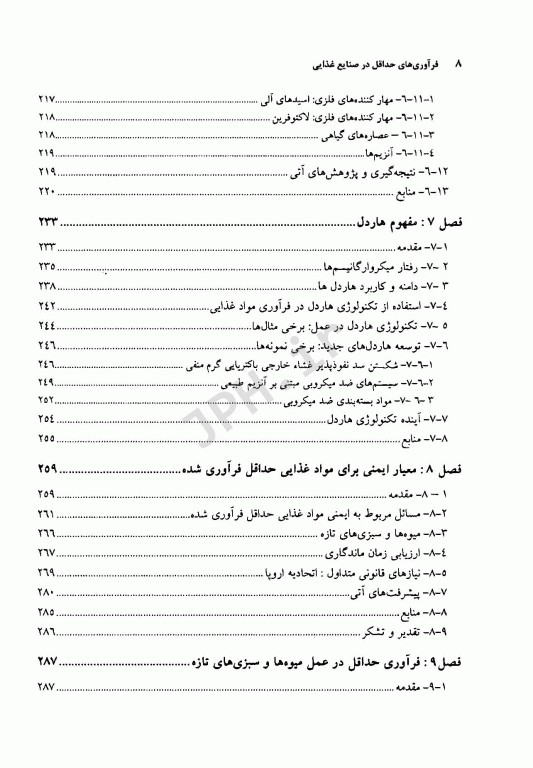 ۸ فرآوری‌های حداقل در صنایع غذایی
۶-۱۱-۱- مهار کننده‌های فلزی: اسیدهای آلی ........ ۲۱۷
۶-۱۱-۲- مهار کننده‌های فلزی: لاکتوفرین ........ ۲۱۸
۶-۱۱-۳ – عصاره‌های گیاهی ........ ۲۱۸
۶-۱۱-۴- آنزیم‌ها ........ ۲۱۹
۶-۱۲- نتیجه‌گیری و پژوهش‌های آتی ........ ۲۱۹
۶-۱۳- منابع ........ ۲۲۰
فصل ۷ : مفهوم هاردل ........ ۲۳۳
۷-۱- مقدمه ........ ۲۳۳
۷- ۲- رفتار میکروارگانیسم‌ها ........ ۲۳۵
۷- ۳- دامنه و کاربرد هاردل ها ........ ۲۳۸
۷-۴- استفاده از تکنولوژی هاردل در فرآوری مواد غذایی ........ ۲۴۲
۷- ۵- تکنولوژی هاردل در عمل: برخی مثال‌ها ........ ۲۴۴
۷-۶- توسعه هاردل‌های جدید: برخی نمونه‌ها ........ ۲۴۶
۷-۶-۱- شکستن سد نفوذپذیر غشاء خارجی باکتریایی گرم منفی ........ ۲۴۶
۷-۶-۲- سیستم‌های ضد میکروبی مبتنی بر آنزیم طبیعی ........ ۲۴۹
۷- ۶- ۳- مواد بسته‌بندی ضد میکروبی ........ ۲۵۲
۷-۷- آینده تکنولوژی هاردل ........ ۲۵۴
۷-۸- منابع ........ ۲۵۵
فصل ۸ : معیار ایمنی برای مواد غذایی حداقل فرآوری شده ........ ۲۵۹
۸ – ۱- مقدمه ........ ۲۵۹
۸-۲- مسائل مربوط به ایمنی مواد غذایی حداقل فرآوری شده ........ ۲۶۱
۸-۳- میوه‌ها و سبزی‌های تازه ........ ۲۶۶
۸-۴- ارزیابی زمان ماندگاری ........ ۲۶۷
۸-۵- نیازهای قانونی متداول : اتحادیه اروپا ........ ۲۶۹
۸-۷- پیشرفت‌های آتی ........ ۲۸۰
۸-۸- منابع ........ ۲۸۵
۸-۹- تقدیر و تشکر ........ ۲۸۶
فصل ۹ : فرآوری حداقل در عمل میوه‌ها و سبزی‌های تازه ........ ۲۸۷
۹-۱- مقدمه ........ ۲۸۷
JPH.ir